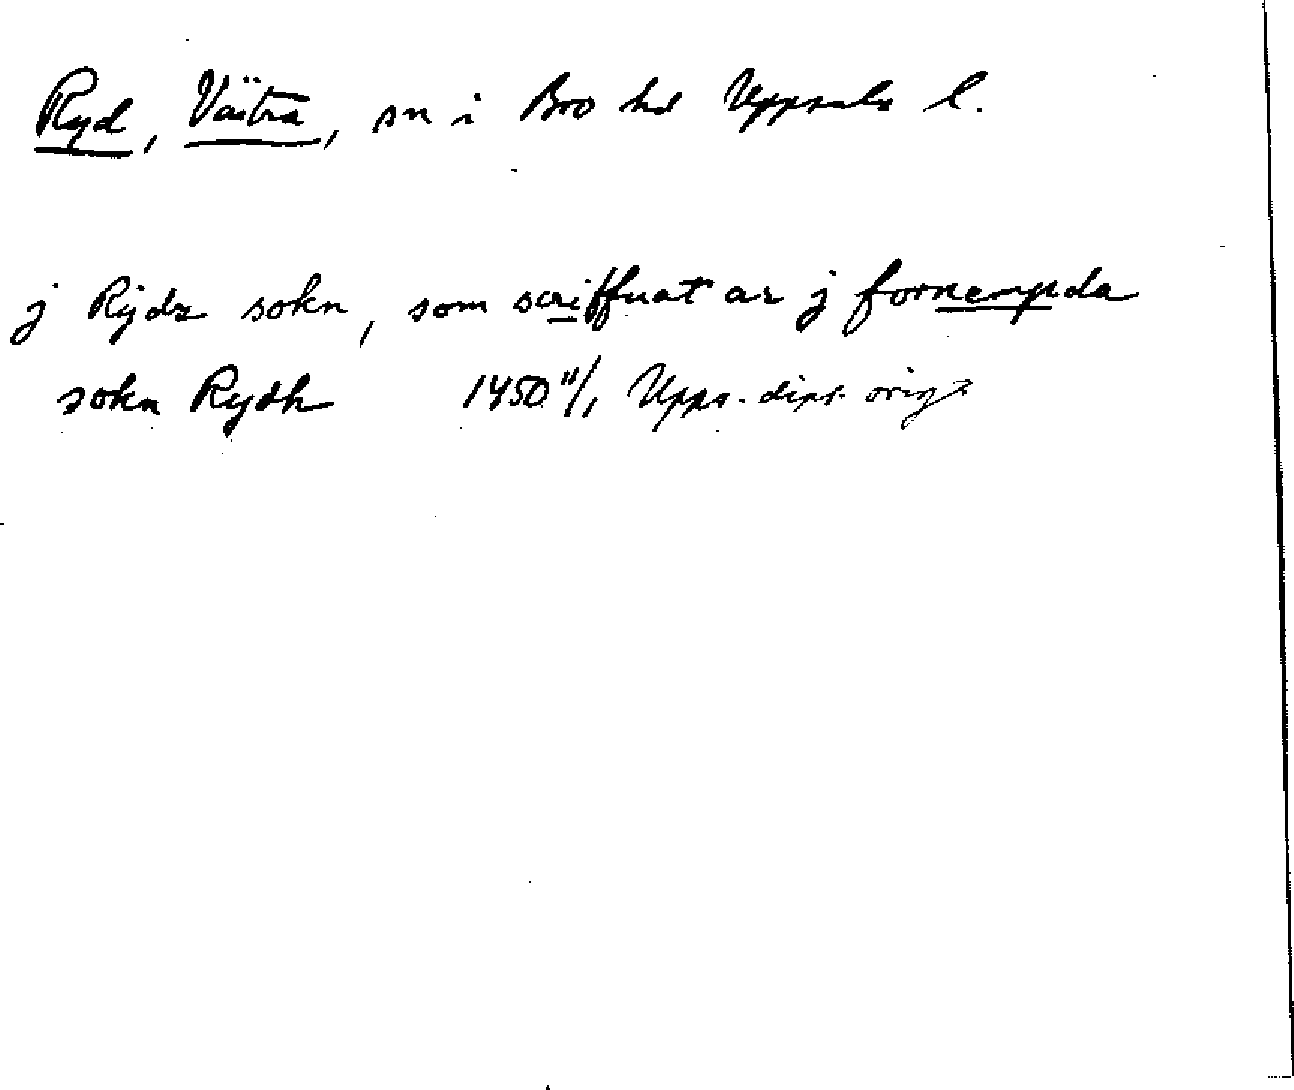 Ryd, Västra, sn i Bro hd Uppsala l.
j Rijdz sokn, som scriffuat ar j fornempda
sokn Rydh 1450 11/1 Upps. dipl. orig